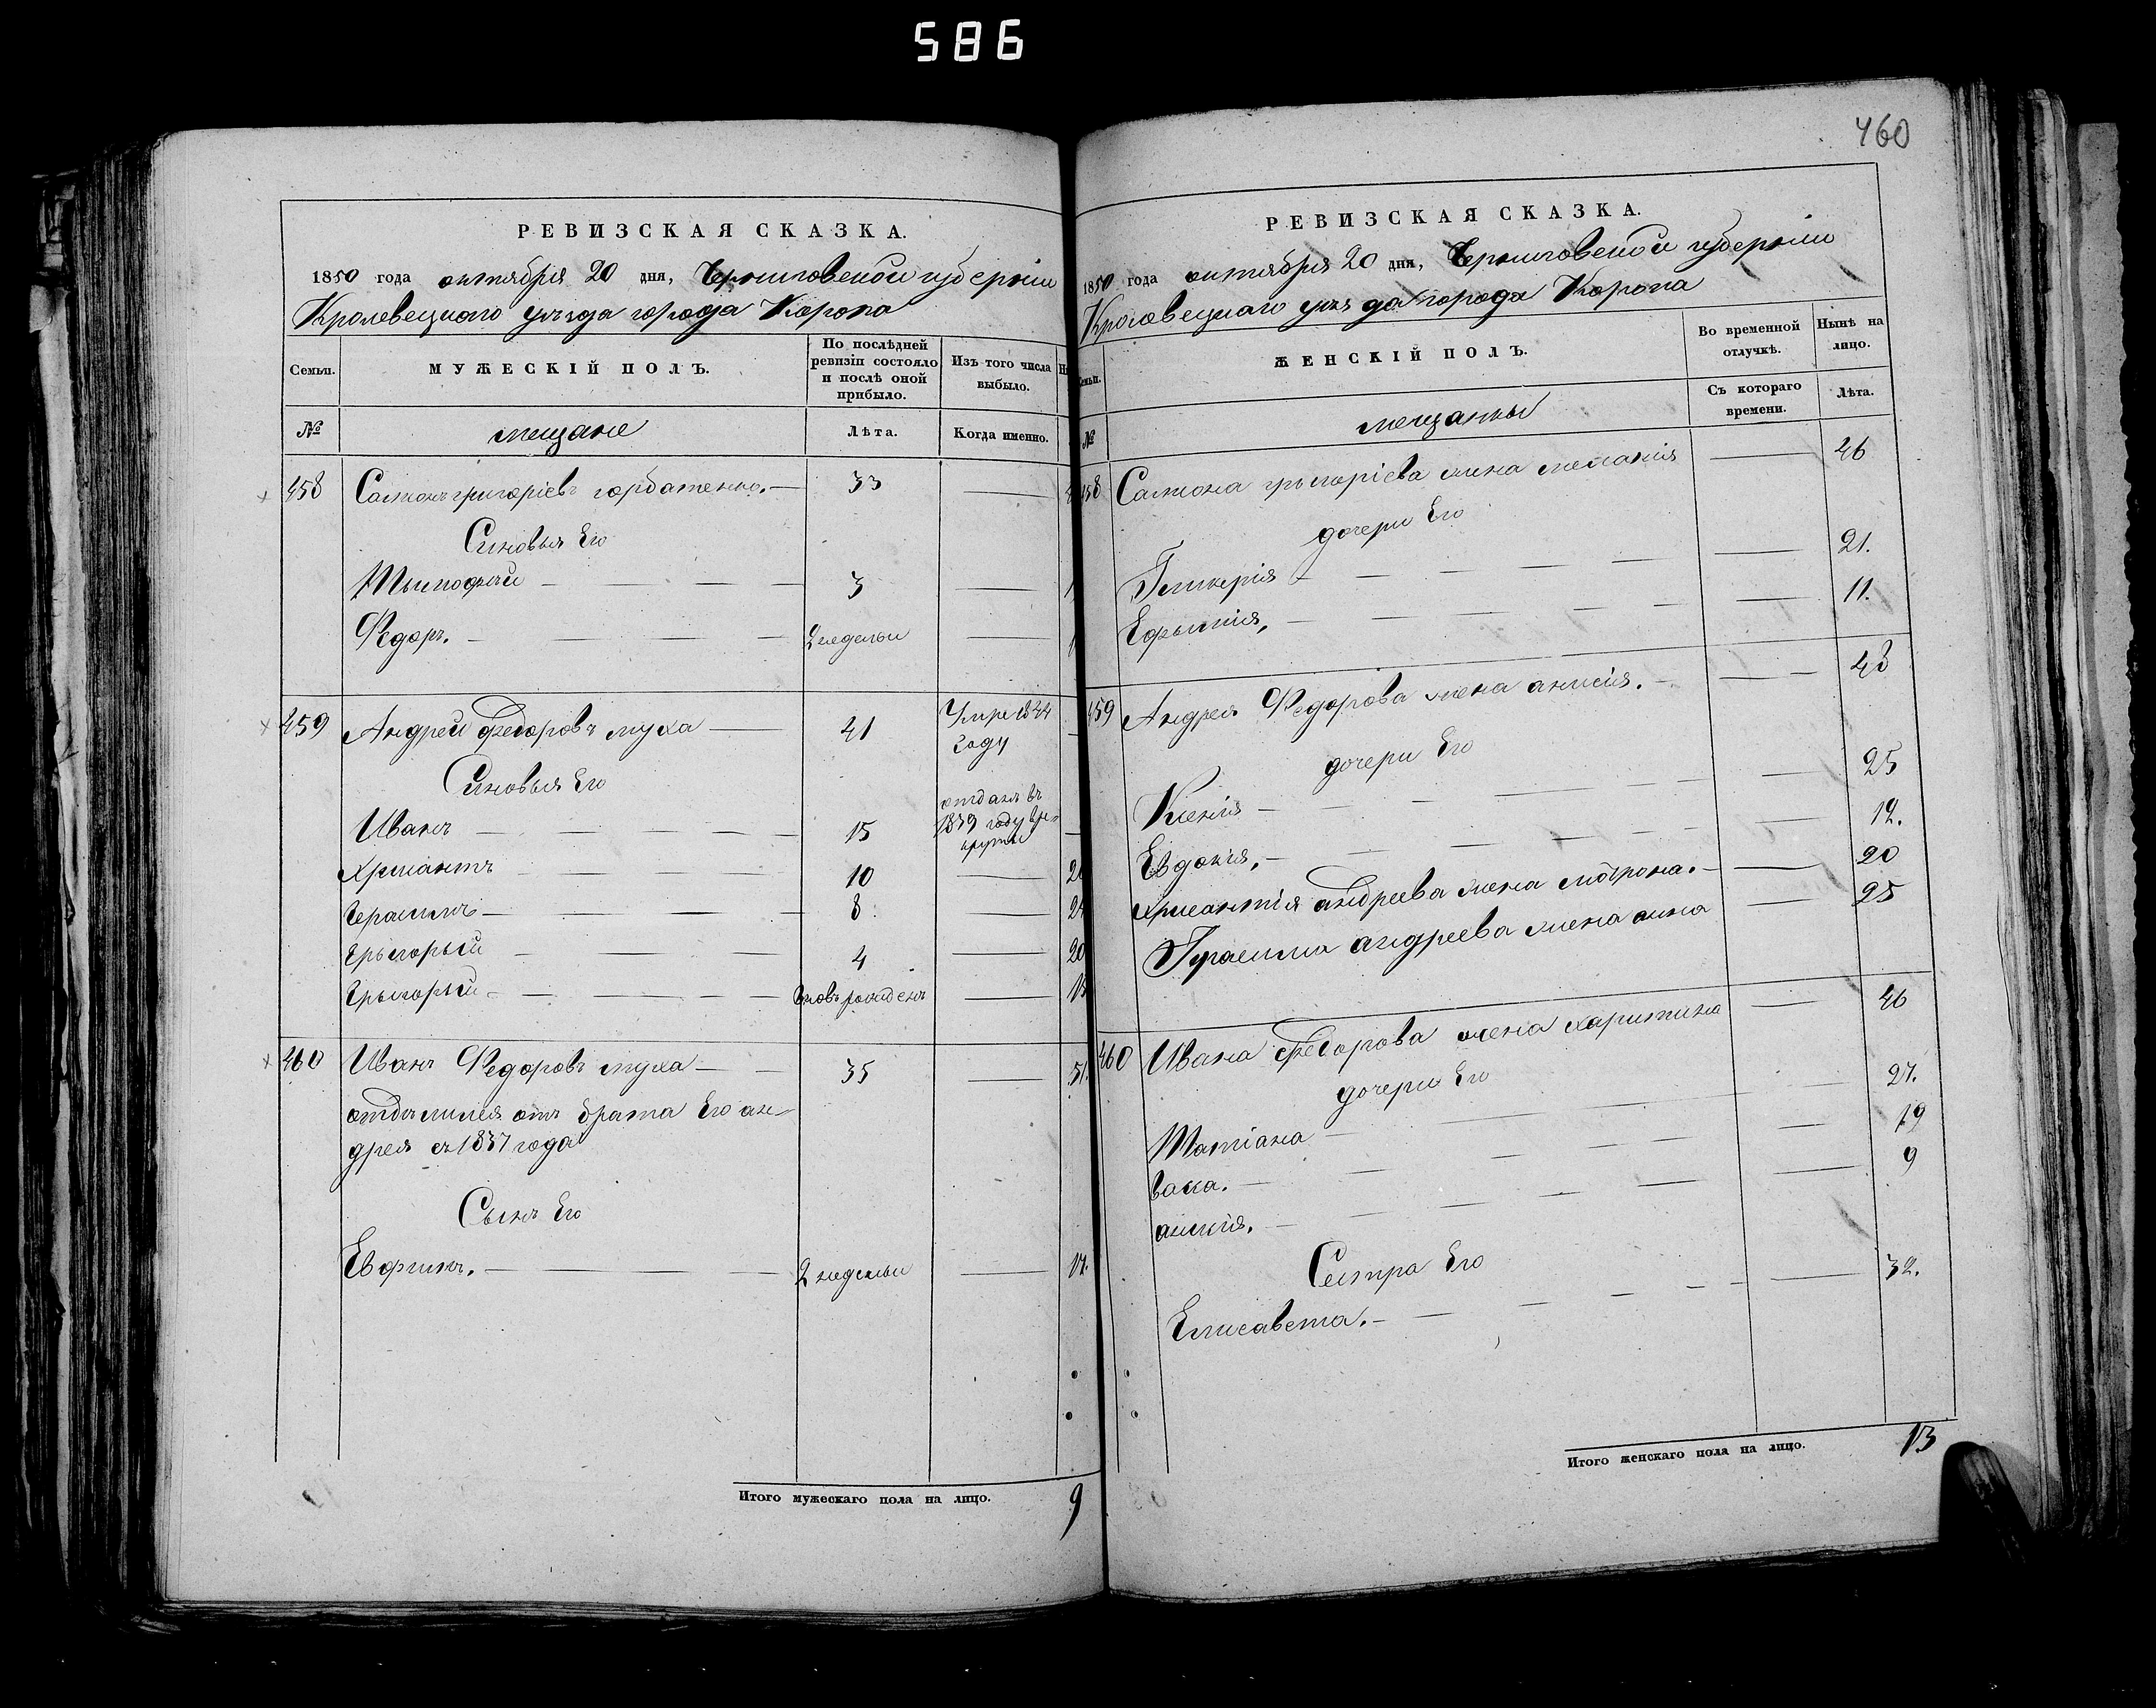 586
РЕВИЗСКАЯ СКАЗКА.
1850 года октября 20 дня, Черниговской губерніи
Кролевецкаго уѣзда города Коропа
Семьи.
МУЖЕСКІЙ ПОЛЪ.
По послѣдней ревизіи состояло и послѣ оной прибыло.
Изъ того числа выбыло.
№
мещане
Лѣта.
Когда именно.
458 Самсонъ григоріевъ горбатенко. 33
Синовья Его
Тымофий 3
Федоръ. 2 недельи
459 Андрей федоровъ муха 41 Умре 1844 году
Синовья Его
Иванъ 15 отданъ въ 1839 году
Хрисантъ 10
Герасимъ 8
Грыгорый 4
Грыгорый вновь рожденъ
460 Иванъ Федоровъ муха 35 51.
отделился отъ брата Его ан-
дрея съ 1837 года
Сынъ Его
Евфимъ. 2 недельи 17.
Итого мужескаго пола на лицо. 9
460
РЕВИЗСКАЯ СКАЗКА.
1850 года октября 20 дня, Черниговской губерніи
Кроловецкаго уезда города Коропа
ЖЕНСКІЙ ПОЛЪ.
Во временной отлучкѣ.
Нынѣ на лицо.
№
мещанкы
Съ котораго времени.
Лѣта.
458 Самсона григоріева жена меланія 46
дочери Его
Гликерія 21.
Ефымія, 11.
459 Андрея Федорова жена анисія. 48
дочери Его
Ксенія 25
Евдокія, 12.
Хрисантія андреева жена мотрона. 20
Герасима андреева жена анна 25
460 Ивана федорова жена харитина 46
дочери Его
Татіана 27.
васса. 19
анисія. 9
Сестра Его
Елисавета. 32.
Итого женскаго пола на лицо. 13